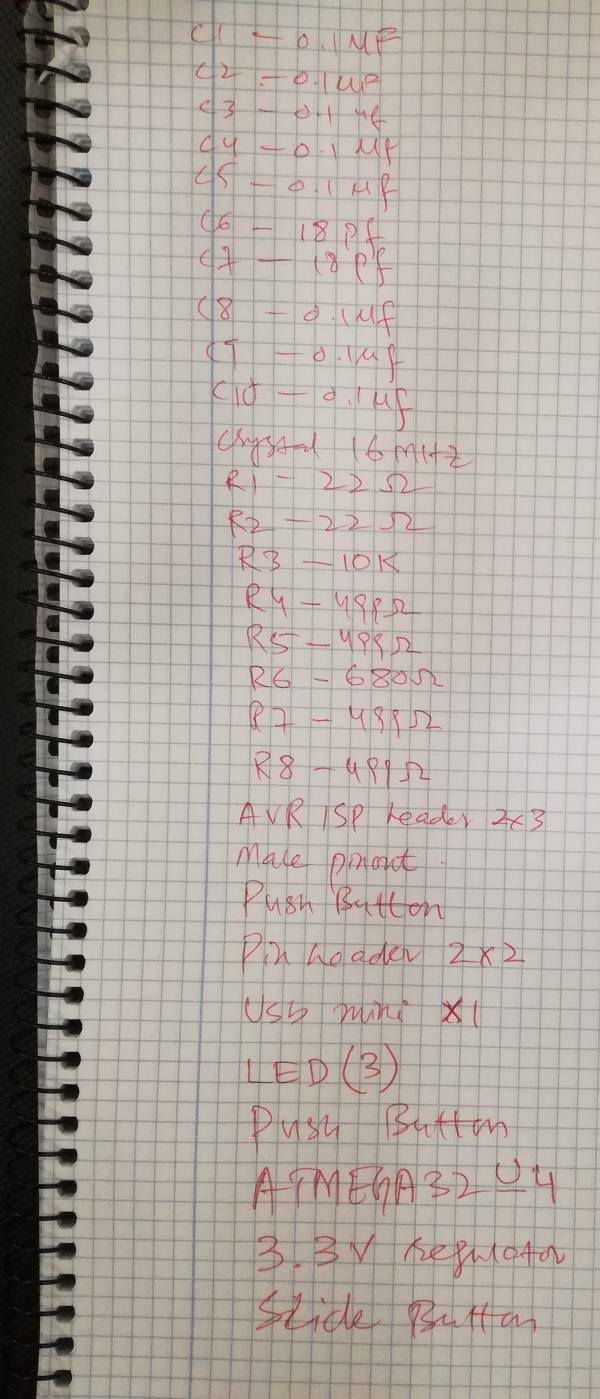 C1 - 0.1 MF
C2 - 0.1 MF
C3 - 0.1 Mf
C4 - 0.1 Mf
C5 - 0.1 Mf
C6 - 18 pf
C7 - 18 pf
C8 - 0.1 Mf
C9 - 0.1 Mf
C10 - 0.1 Mf
Crystal 16 MHZ
R1 - 22 Ω
R2 - 22 Ω
R3 - 10K
R4 - 499Ω
R5 - 499Ω
R6 - 680Ω
R7 - 499Ω
R8 - 499Ω
AVR ISP header 2x3
Male pinout
Push Button
Pin header 2x2
Usb mini x1
LED (3)
Push Button
ATMEGA32U4
3.3V regulator
Slide Button